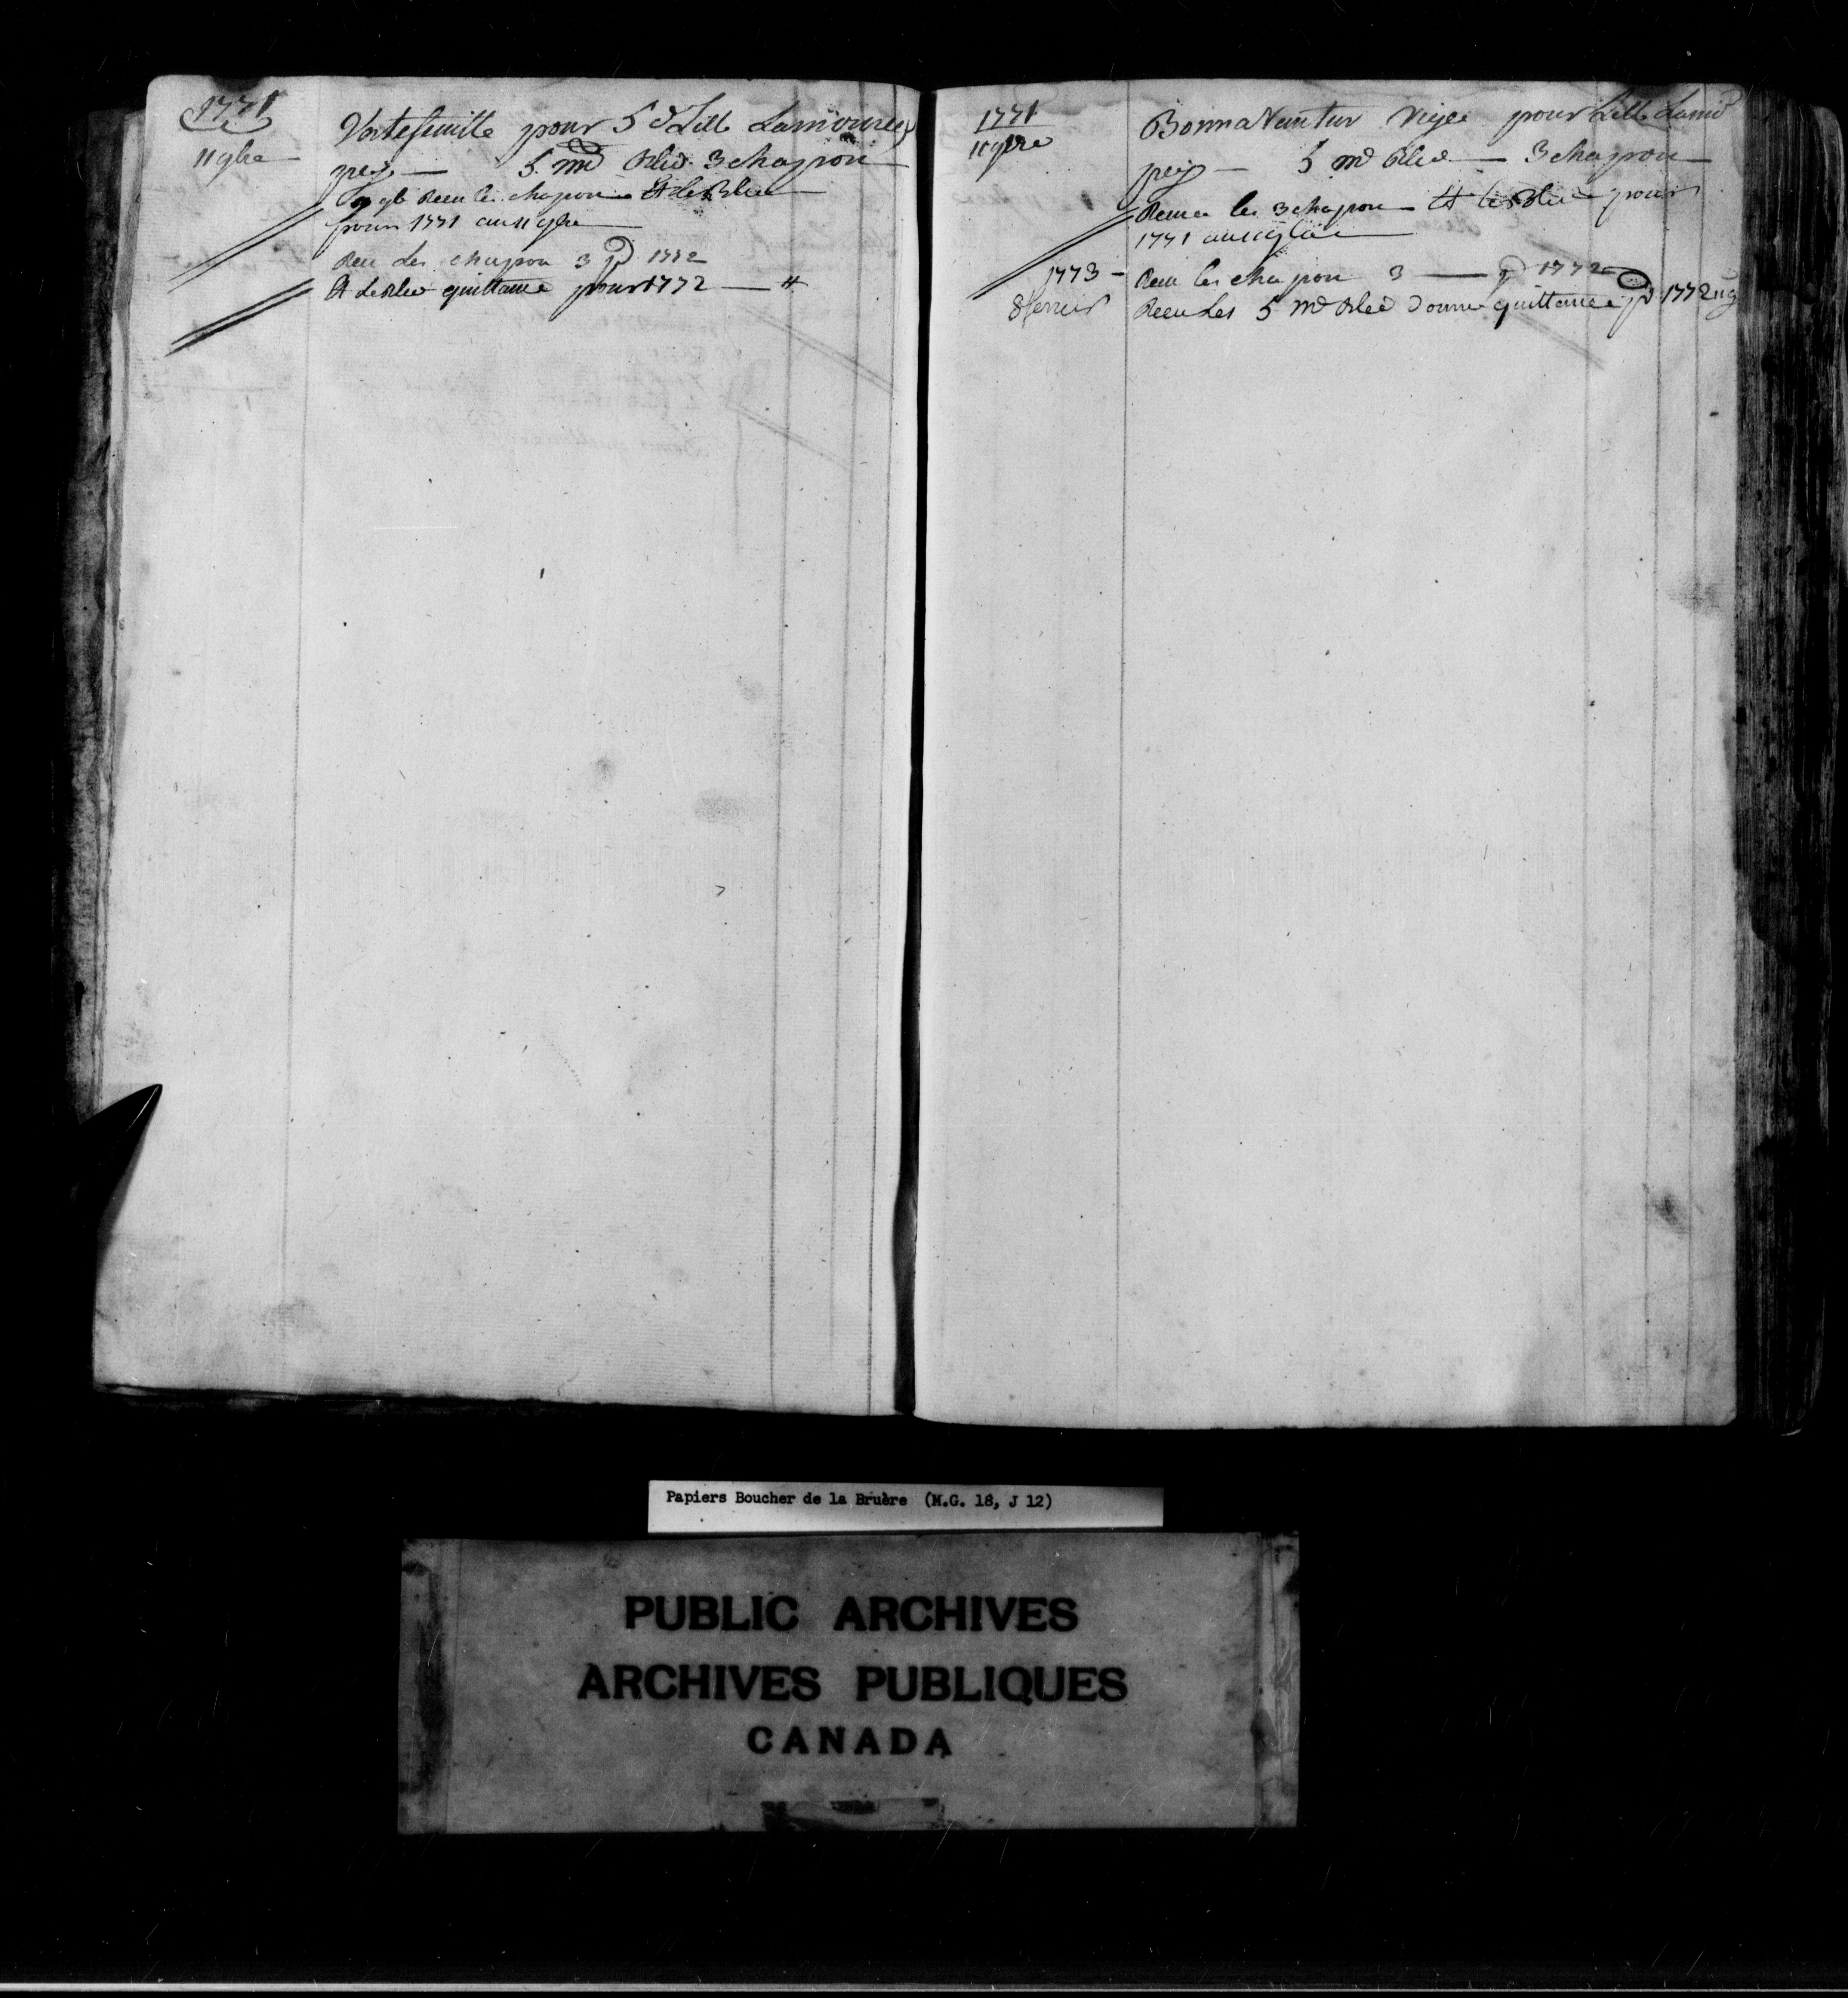 1771
11 9bre
Vertefeuille pour 5 d Lille Lamoureux
peÿe — 5 md Bled 3 chapon
Reeu les chapon Et le Bled
pour 1771 au 11 9bre
Reu Les chapon 3 pd 1772
Et Le Bled quittance pour 1772
1771
11 9bre
BonnaVeintur Vigee pour Lille Lamd
peÿe — 5 md Bled — 3 chapon
Reeu les 3 chapon Et le Bled pour
1771 au 11 9bre
1773 — Reeu les chapon 3 — pd 1772
8 fevrier Reeu Les 5 md Bled donné quittance pd 1772
Papiers Boucher de la Bruère (M.G. 18, J 12)
PUBLIC ARCHIVES
ARCHIVES PUBLIQUES
CANADA